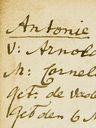 Antonie
V: Arnold
M: Cornel
get: de vade
get den 6 M